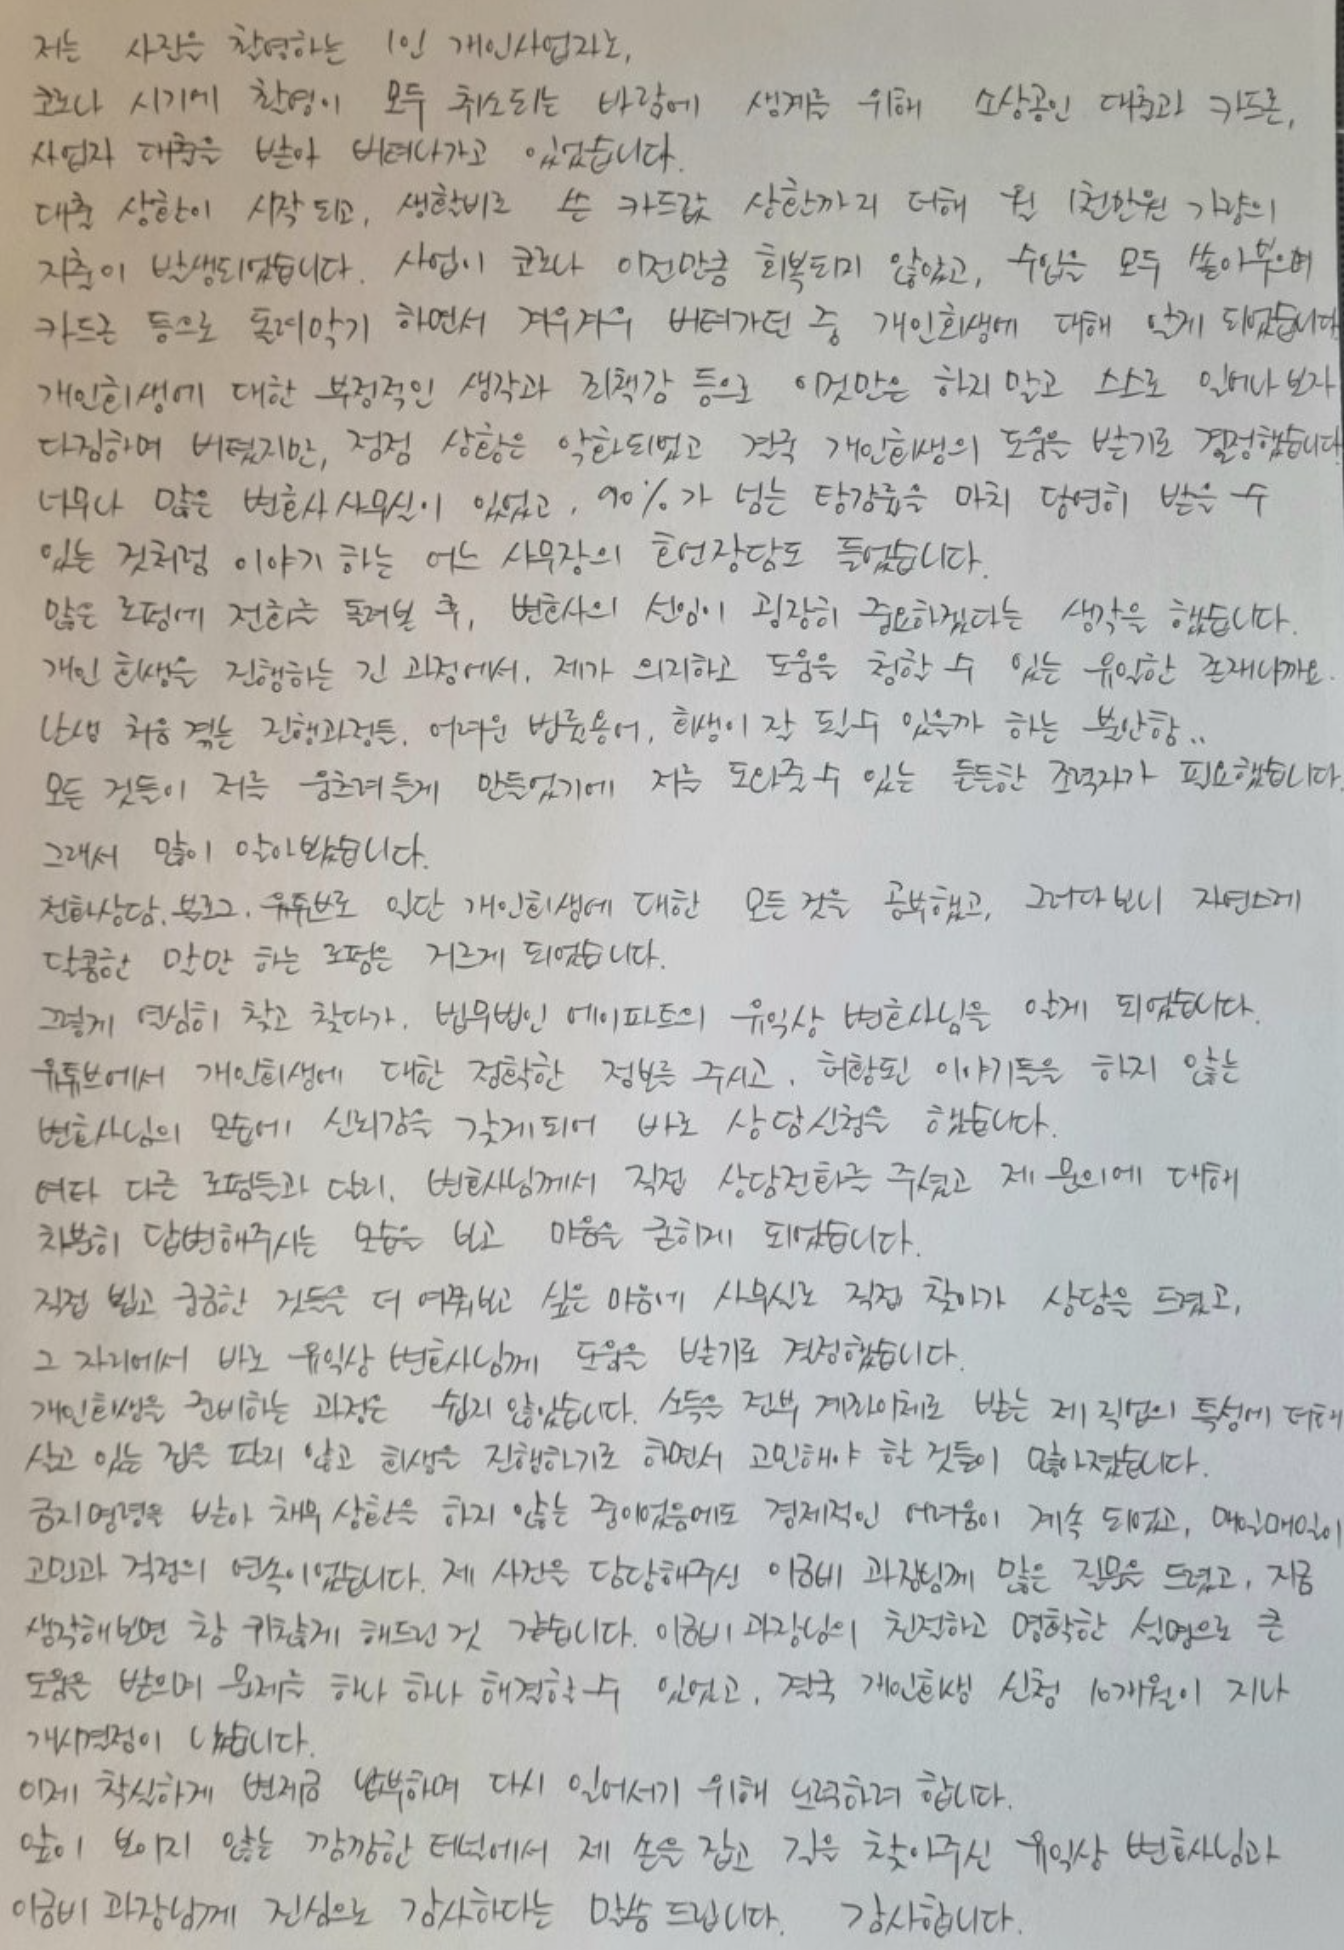 저는 사진을 촬영하는 1인 개인사업자로,
코로나 시기에 촬영이 모두 취소되는 바람에 생계를 위해 소상공인 대출과 카드론,
사업자 대출을 받아 버텨나가고 있었습니다.
대출 상환이 시작 되고, 생활비로 쓴 카드값 상환까지 더해 월 1천만원 가량의
지출이 발생되었습니다. 사업이 코로나 이전만큼 회복되지 않았고, 수입을 모두 쏟아부으며
카드론 등으로 돌려막기 하면서 겨우겨우 버텨가던 중 개인회생에 대해 알게 되었습니다
개인회생에 대한 부정적인 생각과 죄책감 등으로 이것만은 하지 말고 스스로 일어나 보자
다짐하며 버텼지만, 점점 상황은 악화되었고 결국 개인회생의 도움을 받기로 결정했습니다
너무나 많은 변호사 사무실이 있었고, 90%가 넘는 탕감률을 마치 당연히 받을 수
있는 것처럼 이야기 하는 어느 사무장의 호언장담도 들었습니다.
많은 로펌에 전화를 돌려본 후, 변호사의 선임이 굉장히 중요하겠다는 생각을 했습니다.
개인 회생을 진행하는 긴 과정에서, 제가 의지하고 도움을 청할 수 있는 유일한 존재니까요.
난생 처음 겪는 진행과정들, 어려운 법률용어, 회생이 잘 될수 있을까 하는 불안함..
모든 것들이 저를 웅크려 들게 만들었기에 저를 도와줄 수 있는 든든한 조력자가 필요했습니다.
그래서 많이 알아봤습니다.
전화상담, 블로그, 유튜브로 일단 개인회생에 대한 모든 것을 공부했고, 그러다보니 자연스레
달콤한 말만 하는 로펌은 거르게 되었습니다.
그렇게 열심히 찾고 찾다가, 법무법인 에이파트의 유익상 변호사님을 알게 되었습니다.
유튜브에서 개인회생에 대한 정확한 정보를 주시고, 허황된 이야기들을 하지 않는
변호사님의 모습에 신뢰감을 갖게되어 바로 상담신청을 했습니다.
여타 다른 로펌들과 달리, 변호사님께서 직접 상담전화를 주셨고 제 문의에 대해
차분히 답변해주시는 모습을 보고 마음을 굳히게 되었습니다.
직접 뵙고 궁금한 것들을 더 여쭤보고 싶은 마음에 사무실로 직접 찾아가 상담을 드렸고,
그 자리에서 바로 유익상 변호사님께 도움을 받기로 결정했습니다.
개인회생을 준비하는 과정은 쉽지 않았습니다. 소득을 전부 계좌이체로 받는 제 직업의 특성에 더해
살고 있는 집을 팔지 않고 회생을 진행하기로 하면서 고민해야 할 것들이 많아졌습니다.
금지명령을 받아 채무 상환을 하지 않는 중이었음에도 경제적인 어려움이 계속 되었고, 매일매일이
고민과 걱정의 연속이었습니다. 제 사건을 담당해주신 이금비 과장님께 많은 질문을 드렸고, 지금
생각해보면 참 귀찮게 해드린 것 같습니다. 이금비 과장님의 친절하고 명확한 설명으로 큰
도움을 받으며 문제를 하나 하나 해결할 수 있었고, 결국 개인회생 신청 10개월이 지나
개시결정이 났습니다.
이제 착실하게 변제금 납부하며 다시 일어서기 위해 노력하려 합니다.
앞이 보이지 않는 깜깜한 터널에서 제 손을 잡고 길을 찾아주신 유익상 변호사님과
이금비 과장님께 진심으로 감사하다는 말씀 드립니다. 감사합니다.